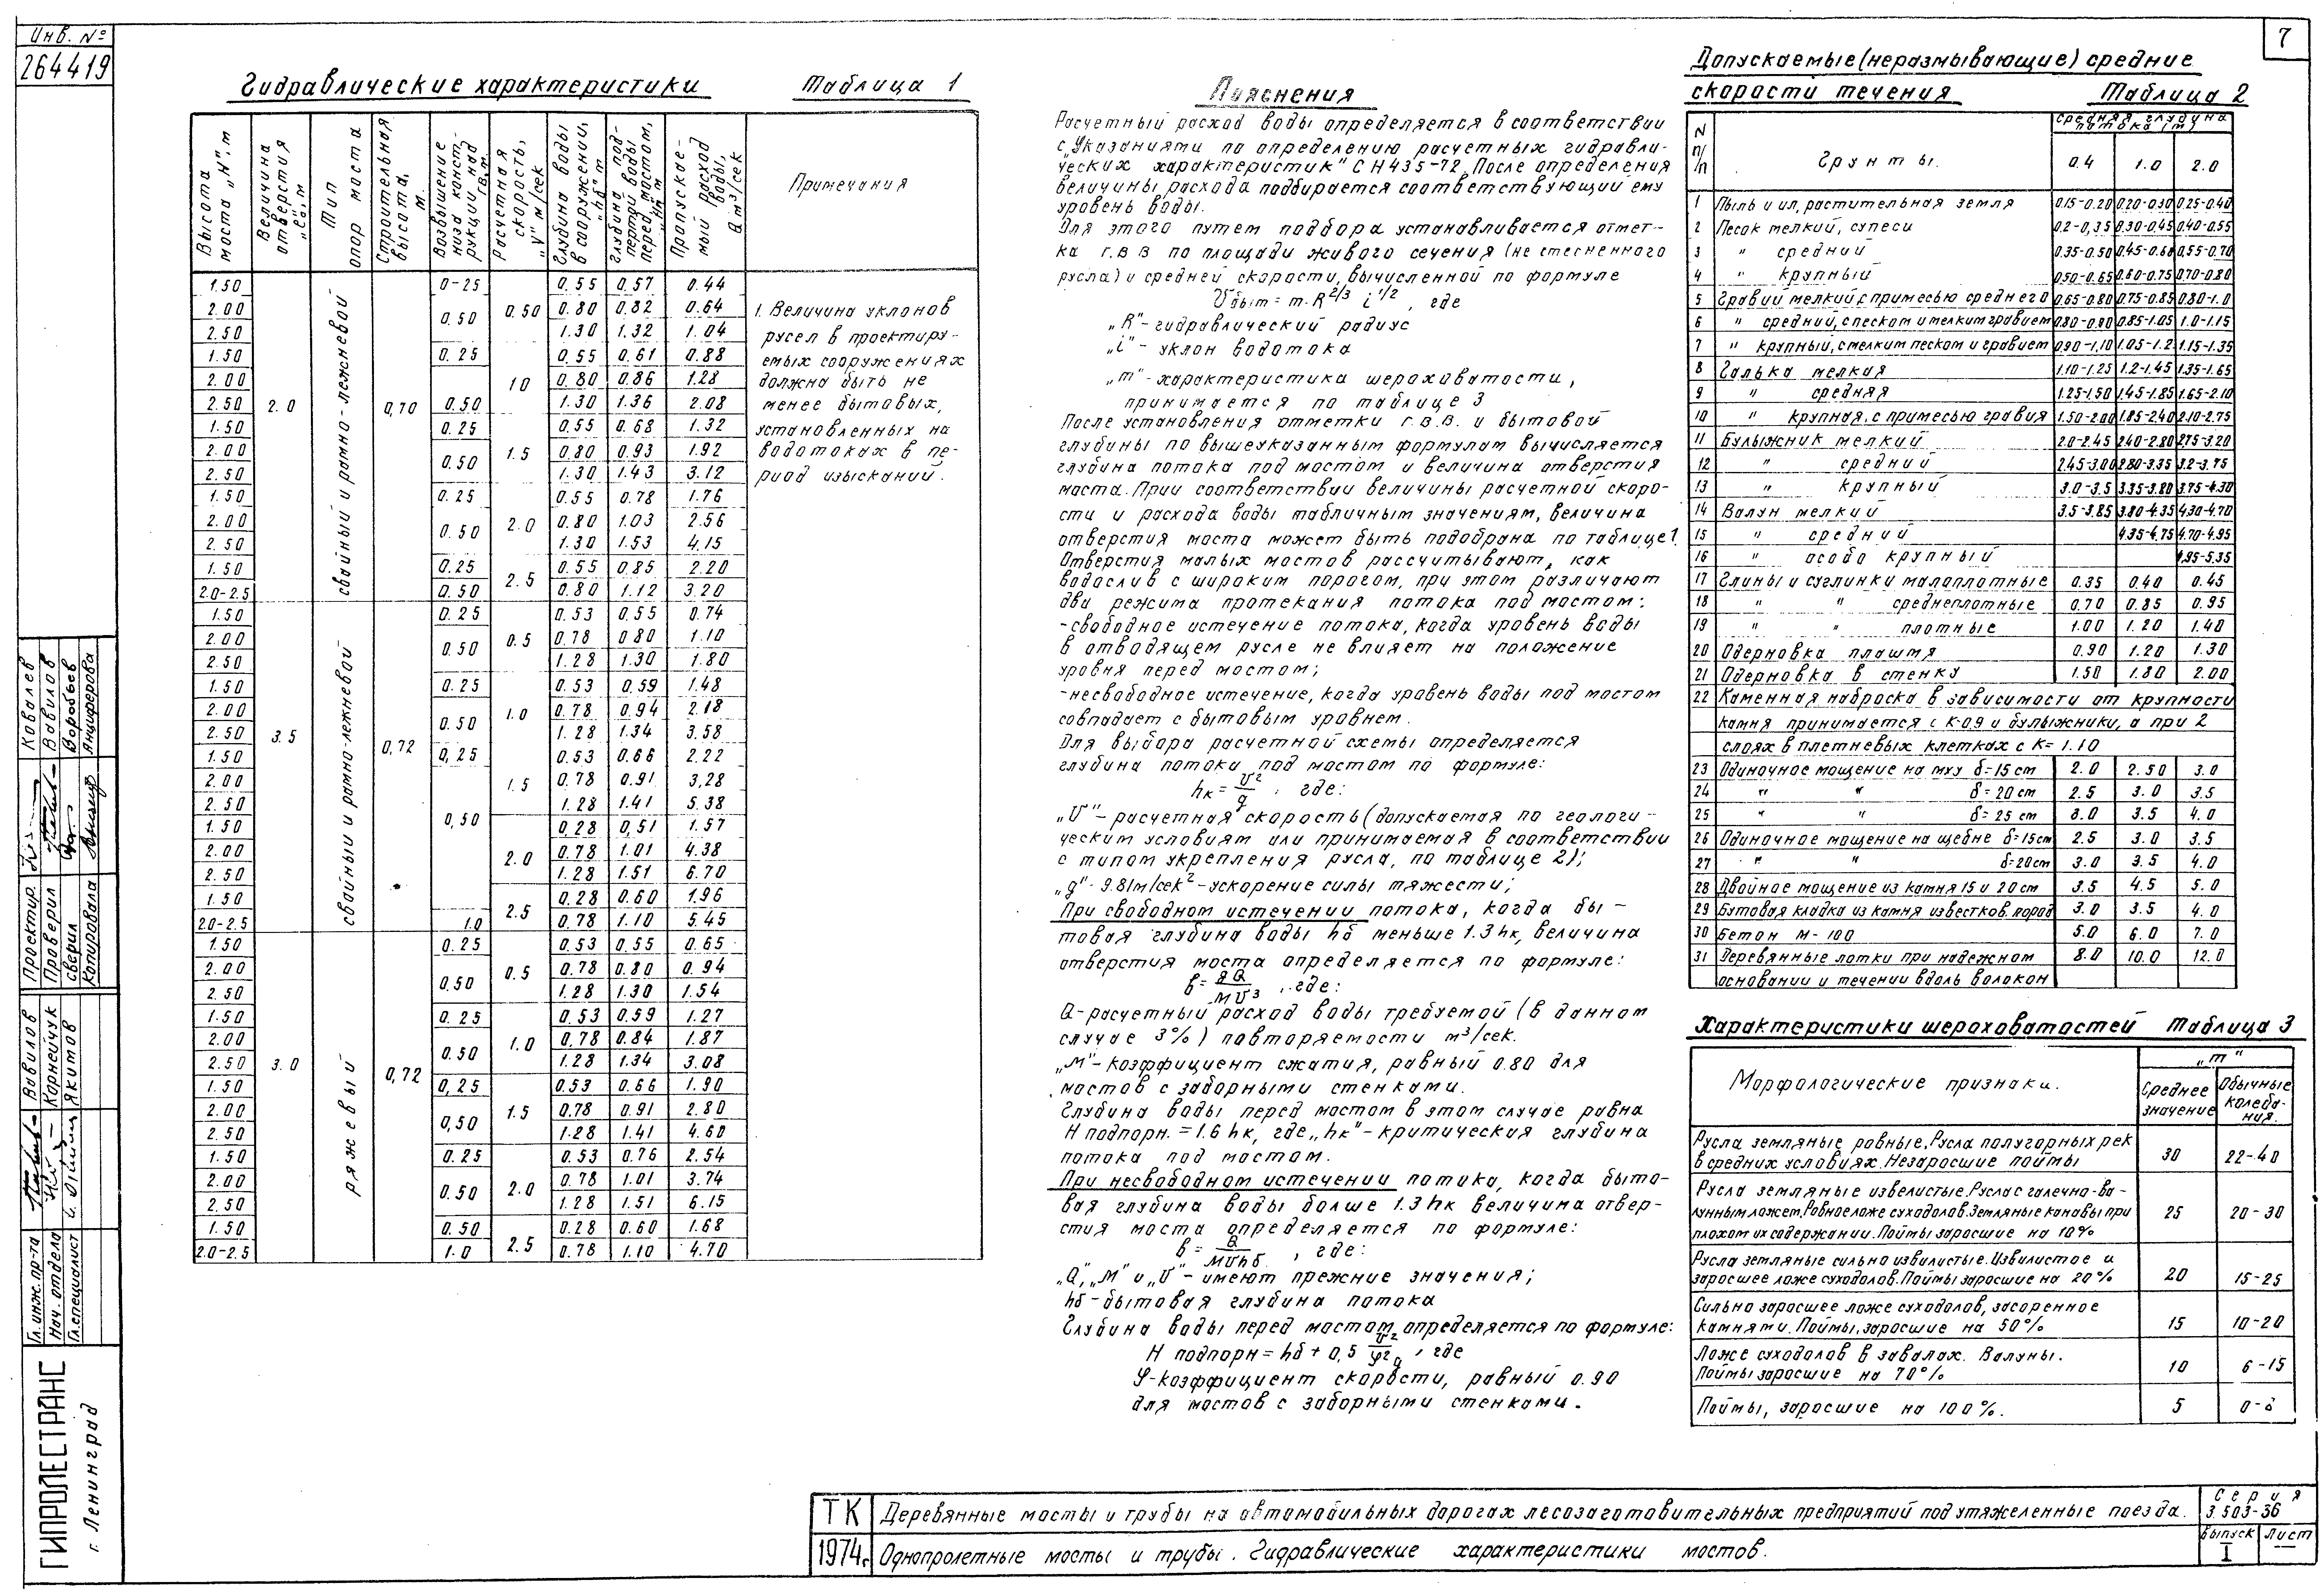 Инв. №
264419
7
Гидравлические характеристики Таблица 1
Высота моста „Н", м
Величина отверстия „ℓо", м
Тип опор моста
Строительная высота, м.
Возвышение низа конструкции над г.в. м.
Расчетная скорость, „V" м/сек
Глубина воды в сооружении, „hб" м
Глубина подпертой воды перед мостом, „Нп" м
Пропускаемый расход воды, Q м³/сек
Примечания
2.0 свайный и рамно-лежневой 0,70
1.50 0-25 0.50 0.55 0.57 0.44
2.00 0.50 0.80 0.82 0.64
2.50 1.30 1.32 1.04
1.50 0.25 10 0.55 0.61 0.88
2.00 0.80 0.86 1.28
2.50 0.50 1.30 1.36 2.08
1.50 0.25 1.5 0.55 0.68 1.32
2.00 0.50 0.80 0.93 1.92
2.50 1.30 1.43 3.12
1.50 0.25 2.0 0.55 0.78 1.76
2.00 0.50 0.80 1.03 2.56
2.50 1.30 1.53 4.15
1.50 0.25 2.5 0.55 0.85 2.20
2.0-2.5 0.50 0.80 1.12 3.20
3.5 свайный и рамно-лежневой 0,72
1.50 0.25 0.5 0.53 0.55 0.74
2.00 0.50 0.78 0.80 1.10
2.50 1.28 1.30 1.80
1.50 0.25 1.0 0.53 0.59 1.48
2.00 0.50 0.78 0.94 2.18
2.50 1.28 1.34 3.58
1.50 0,25 1.5 0.53 0.66 2.22
2.00 0,50 0.78 0.91 3,28
2.50 1.28 1.41 5.38
1.50 2.0 0.28 0,51 1.57
2.00 0.78 1.01 4.38
2.50 1.28 1.51 6.70
1.50 2.5 0.28 0.60 1.96
2.0-2.5 1.0 0.78 1.10 5.45
3.0 ряжевый 0,72
1.50 0.25 0.5 0.53 0.55 0.65
2.00 0.50 0.78 0.80 0.94
2.50 1.28 1.30 1.54
1.50 0.25 1.0 0.53 0.59 1.27
2.00 0.50 0.78 0.84 1.87
2.50 1.28 1.34 3.08
1.50 0,25 1.5 0.53 0.66 1.90
2.00 0,50 0.78 0.91 2.80
2.50 1.28 1.41 4.60
1.50 0.25 2.0 0.53 0.76 2.54
2.00 0.50 0.78 1.01 3.74
2.50 1.28 1.51 6.15
1.50 0.50 2.5 0.28 0.60 1.68
2.0-2.5 1.0 0.78 1.10 4.70
1. Величина уклонов
русел в проектиру-
емых сооружениях
должна быть не
менее бытовых,
установленных на
водотоках в пе-
риод изысканий.
Пояснения
Расчетный расход воды определяется в соответствии
с „Указаниями по определению расчетных гидравли-
ческих характеристик" СН435-72. После определения
величины расхода подбирается соответствующий ему
уровень воды.
Для этого путем подбора устанавливается отмет-
ка г.в.в по площади живого сечения (не стесненного
русла) и средней скорости, вычисленной по формуле
Vбыт = m.R²/³ i¹/², где
„R"-гидравлический радиус
„i"- уклон водотока
„m"-характеристика шероховатости,
принимается по таблице 3
После установления отметки г.в.в. и бытовой
глубины по вышеуказанным формулам вычисляется
глубина потока под мостом и величина отверстия
моста. При соответствии величины расчетной скоро-
сти и расхода воды табличным значениям, величина
отверстия моста может быть подобрана по таблице 1.
Отверстия малых мостов рассчитывают, как
водослив с широким порогом, при этом различают
два режима протекания потока под мостом:
-свободное истечение потока, когда уровень воды
в отводящем русле не влияет на положение
уровня перед мостом;
-несвободное истечение, когда уровень воды под мостом
совпадает с бытовым уровнем.
Для выбора расчетной схемы определяется
глубина потока под мостом по формуле:
hк = V²/g, где:
„V"- расчетная скорость (допускаемая по геологи-
ческим условиям или принимаемая в соответствии
с типом укрепления русла, по таблице 2);
„g"- 9.81м/сек²-ускорение силы тяжести;
При свободном истечении потока, когда бы-
товая глубина воды hб меньше 1.3hк, величина
отверстия моста определяется по формуле:
в = gQ/МV³, где:
Q-расчетный расход воды требуемой (в данном
случае 3%) повторяемости м³/сек.
„М"-коэффициент сжатия, равный 0.80 для
мостов с заборными стенками.
Глубина воды перед мостом в этом случае равна
Н подпорн. = 1.6 hк, где „hк"- критическия глубина
потока под мостом.
При несвободном истечении потока, когда быто-
вая глубина воды больше 1.3hк величина отвер-
стия моста определяется по формуле:
в = Q/МVhб, где:
„Q", „М" и „V"- имеют прежние значения;
hб-бытовая глубина потока
Глубина воды перед мостом определяется по формуле:
Н подпорн = hб + 0,5 V²/φ²g, где
φ-коэффициент скорости, равный 0.90
для мостов с заборными стенками.
Допускаемые (неразмывающие) средние
скорости течения Таблица 2
N п/п Грунты. Средняя глубина потока (м)
0.4 1.0 2.0
1 Пыль и ил, растительная земля 0.15-0.20 0.20-0.30 0.25-0.40
2 Песок мелкий, супеси 0.2-0,35 0.30-0.45 0.40-0.55
3 " средний 0.35-0.50 0.45-0.60 0.55-0.70
4 " крупный 0.50-0.65 0.60-0.75 0.70-0.80
5 Гравий мелкий с примесью среднего 0.65-0.80 0.75-0.85 0.80-1.0
6 " средний, с песком и мелким гравием 0.80-0.90 0.85-1.05 1.0-1.15
7 " крупный, с мелким песком и гравием 0.90-1.10 1.05-1.2 1.15-1.35
8 Галька мелкая 1.10-1.25 1.2-1.45 1.35-1.65
9 " средняя 1.25-1.50 1.45-1.85 1.65-2.10
10 " крупная, с примесью гравия 1.50-2.00 1.85-2.40 2.10-2.75
11 Булыжник мелкий 2.0-2.45 2.40-2.80 2.75-3.20
12 " средний 2.45-3.00 2.80-3.35 3.2-3.75
13 " крупный 3.0-3.5 3.35-3.80 3.75-4.30
14 Валун мелкий 3.5-3.85 3.80-4.35 4.30-4.70
15 " средний 4.35-4.75 4.70-4.95
16 " особо крупный 4.95-5.35
17 Глины и суглинки малоплотные 0.35 0.40 0.45
18 " " среднеплотные 0.70 0.85 0.95
19 " " плотные 1.00 1.20 1.40
20 Одерновка плашмя 0.90 1.20 1.30
21 Одерновка в стенку 1.50 1.80 2.00
22 Каменная наброска в зависимости от крупности
камня принимается с К-0,9 и булыжники, а при 2
слоях в плетневых клетках с К= 1.10
23 Одиночное мощение на мху δ=15 см 2.0 2.50 3.0
24 " " δ=20 см 2.5 3.0 3.5
25 " " δ=25 см 3.0 3.5 4.0
26 Одиночное мощение на щебне δ=15см 2.5 3.0 3.5
27 " " δ=20см 3.0 3.5 4.0
28 Двойное мощение из камня 15 и 20 см 3.5 4.5 5.0
29 Бутовая кладка из камня известков. пород 3.0 3.5 4.0
30 Бетон М-100 5.0 6.0 7.0
31 Деревянные лотки при надежном 8.0 10.0 12.0
основании и течении вдоль волокон
Характеристики шероховатостей Таблица 3
Морфологические признаки. „m"
Среднее значение Обычные колебания.
Русла земляные ровные. Русла полугорных рек
в средних условиях. Незаросшие поймы 30 22-40
Русла земляные извелистые. Русла с галечно-ва-
лунным ложем. Ровное ложе суходолов. Земляные канавы при
плохом их содержании. Поймы заросшие на 10% 25 20-30
Русла земляные сильно извилистые. Извилистое и
заросшее ложе суходолов. Поймы заросшие на 20% 20 15-25
Сильно заросшее ложе суходолов, засоренное
камнями. Поймы, заросшие на 50% 15 10-20
Ложе суходолов в завалах. Валуны.
Поймы заросшие на 70% 10 6-15
Поймы, заросшие на 100%. 5
Проектир. Ковалев
Проверил Вавилов
сверил Воробьев
Копировала Анциферова
Гл. инж. пр-та Вавилов
Нач. отдела Корнейчук
Гл. специалист Якимов
ГИПРОЛЕСТРАНС
г. Ленинград
ТК Деревянные мосты и трубы на автомобильных дорогах лесозаготовительных предприятий под утяжеленные поезда.
Серия
3.503-36
1974г. Однопролетные мосты и трубы. Гидравлические характеристики мостов.
Выпуск Лист
I —